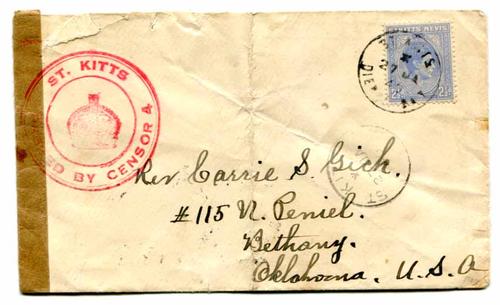 ST. KITTS
ED BY CENSOR 4
ST KITTS NEVIS
2½
Rev Carrie S Gick.
#115 N. Peniel.
Bethany.
Oklahoma, U.S.A
ST